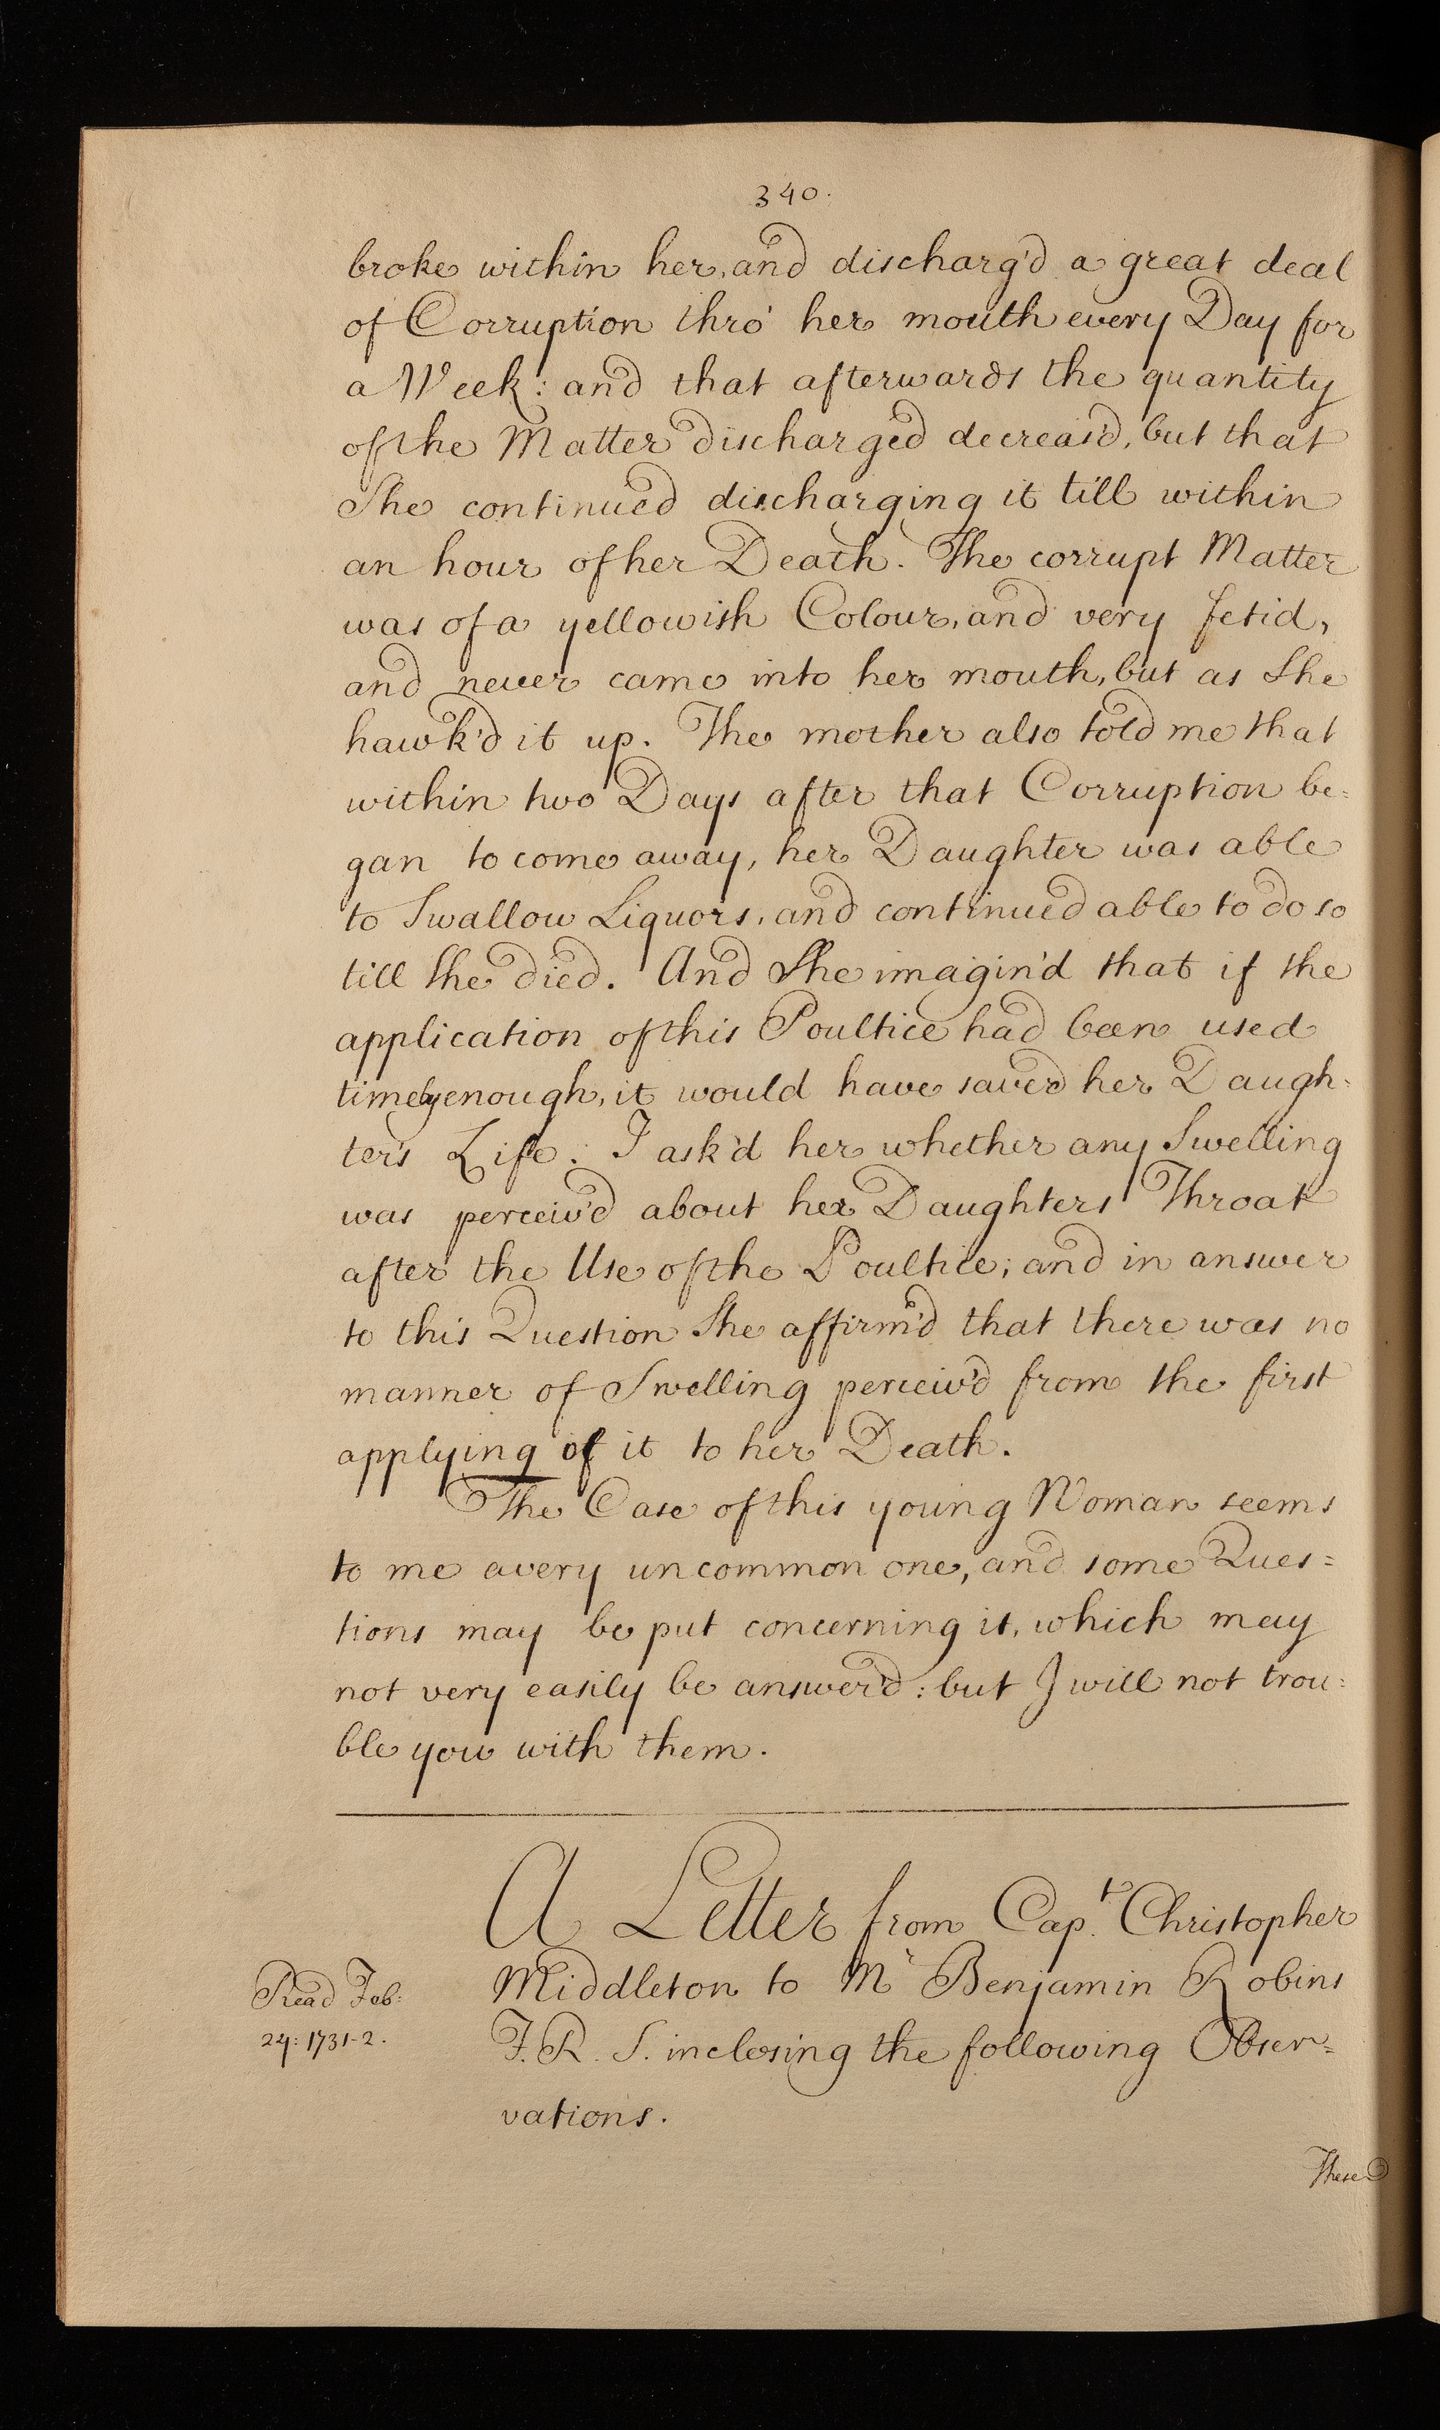 340.
broke within her, and discharg'd a great deal
of Corruption thro' her mouth every Day for
a Week: and that afterwards the quantity
of the Matter discharged decreas'd, but that
She continued discharging it till within
an hour of her Death. The corrupt Matter
was of a yellowish Colour, and very fetid,
and never came into her mouth, but as She
hawk'd it up. The mother also told me that
within two Days after that Corruption be=
gan to come away, her Daughter was able
to Swallow Liquors, and continued able to do so
till She died. And She imagin'd that if the
application of this Poultice had been used
timely enough, it would have saved her Daugh=
ter's Life. I ask'd her whether any Swelling
was perceiv'd about her Daughters Throat
after the Use of the Poultice; and in answer
to this Question She affirm'd that there was no
manner of Swelling perceiv'd from the first
applying of it to her Death.
The Case of this young Woman seems
to me a very uncommon one, and some Ques=
tions may be put concerning it, which may
not very easily be answer'd: but I will not trou=
ble you with them.
A Letter from Capt. Christopher
Middleton to Mr Benjamin Robins
Read Feb:
24: 1731-2.
F. R. S. inclosing the following Obser=
vations.
These